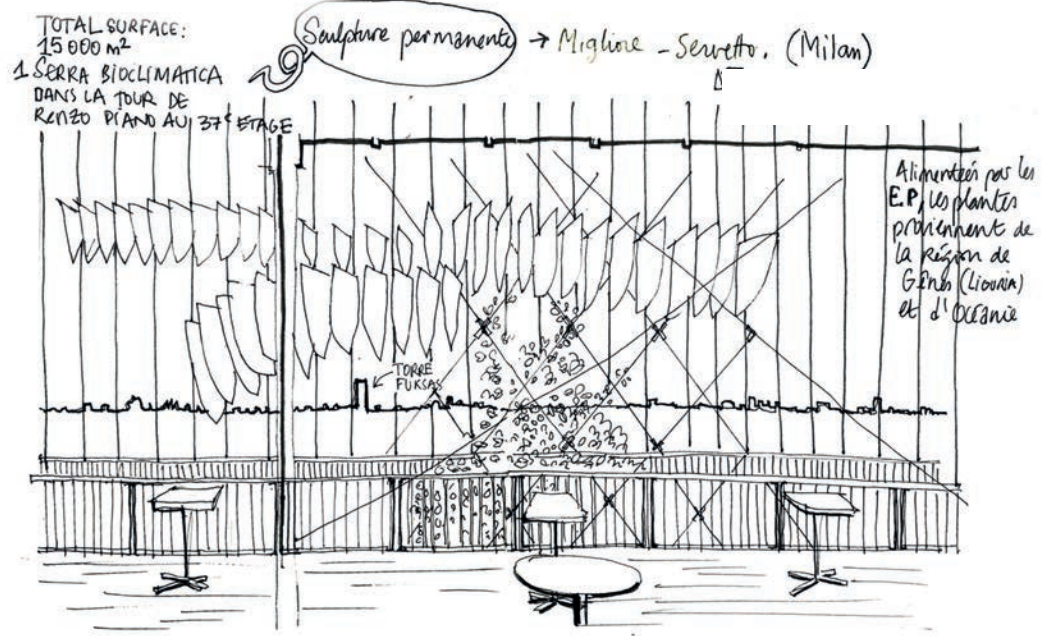 TOTAL SURFACE:
15000 m²
1 SERRA BIOCLIMATICA
DANS LA TOUR DE
RENZO PIANO AU 37e ETAGE
Sculpture permanente → Migliore - Servetto. (Milan)
Alimentées par les
E.P, les plantes
proviennent de
la Région de
Gênes (LIGURIA)
et d'Océanie
TORRE
FUKSAS